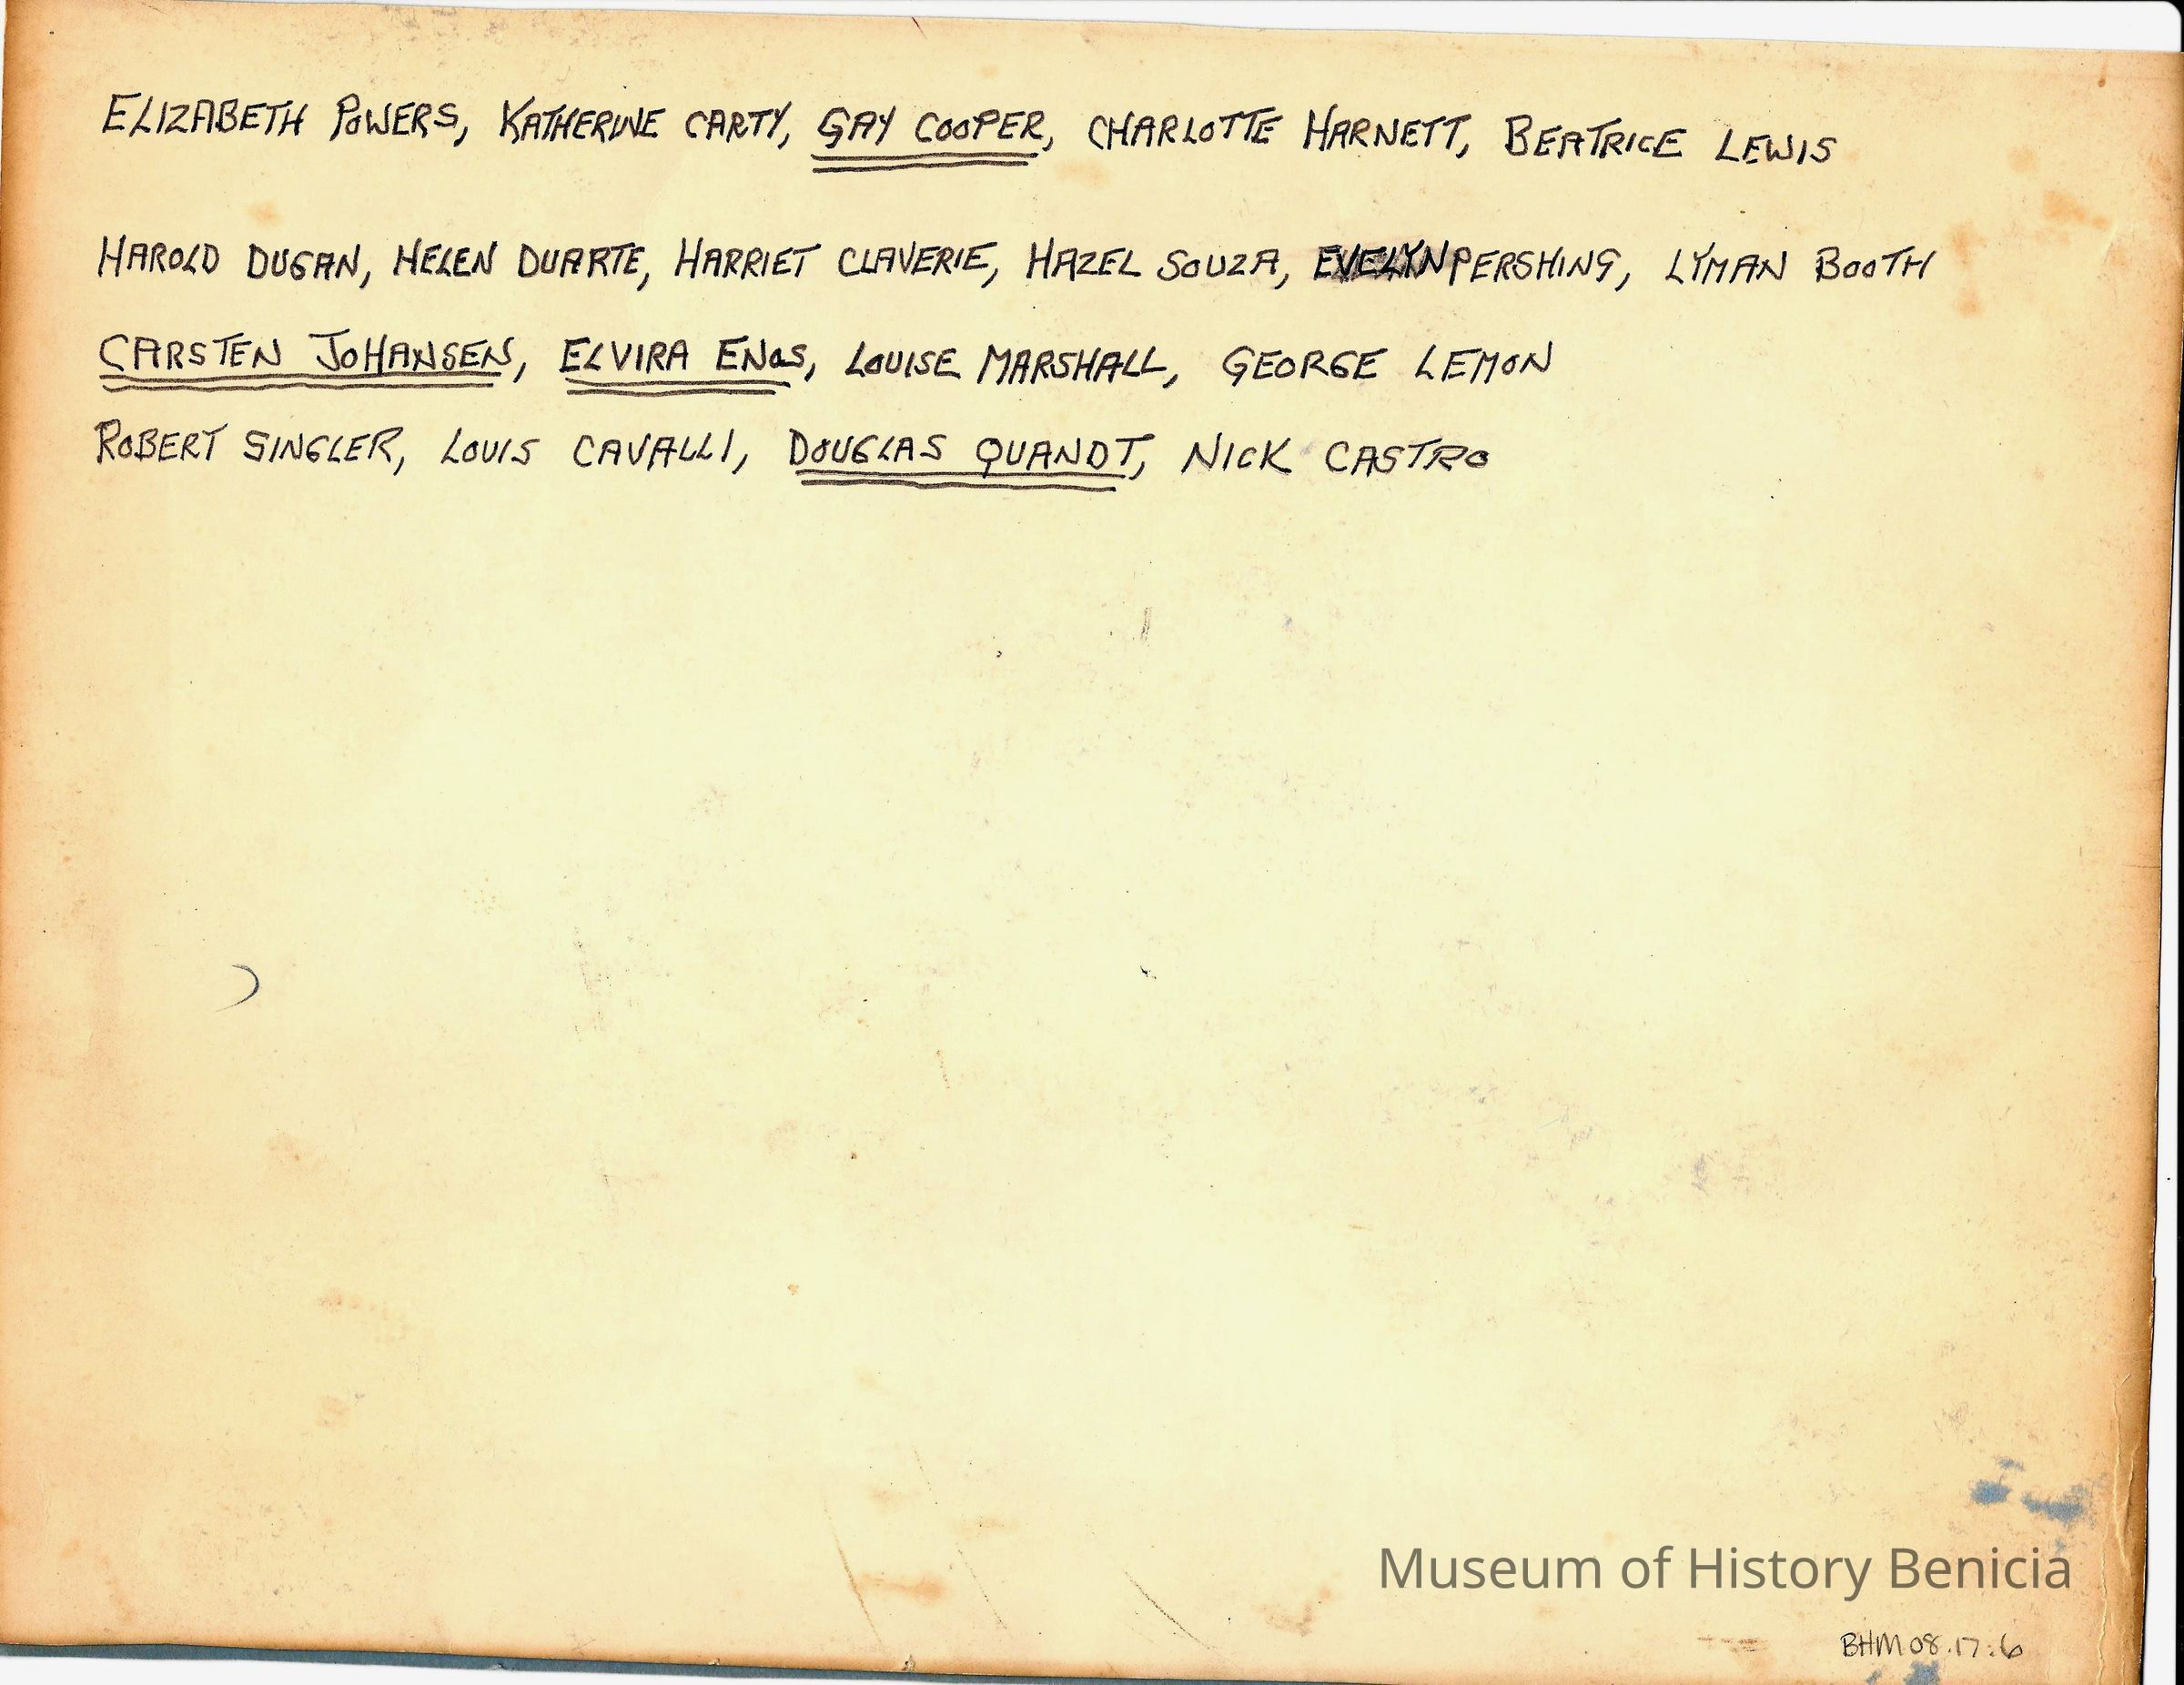 ELIZABETH POWERS, KATHERINE CARTY, GAY COOPER, CHARLOTTE HARNETT, BEATRICE LEWIS
HAROLD DUGAN, HELEN DUARTE, HARRIET CLAVERIE, HAZEL SOUZA, EVELYN PERSHING, LYMAN BOOTH
CARSTEN JOHANSEN, ELVIRA ENOS, LOUISE MARSHALL, GEORGE LEMON
ROBERT SINGLER, LOUIS CAVALLI, DOUGLAS QUANDT, NICK CASTRO
Museum of History Benicia
BHM 08.17.6